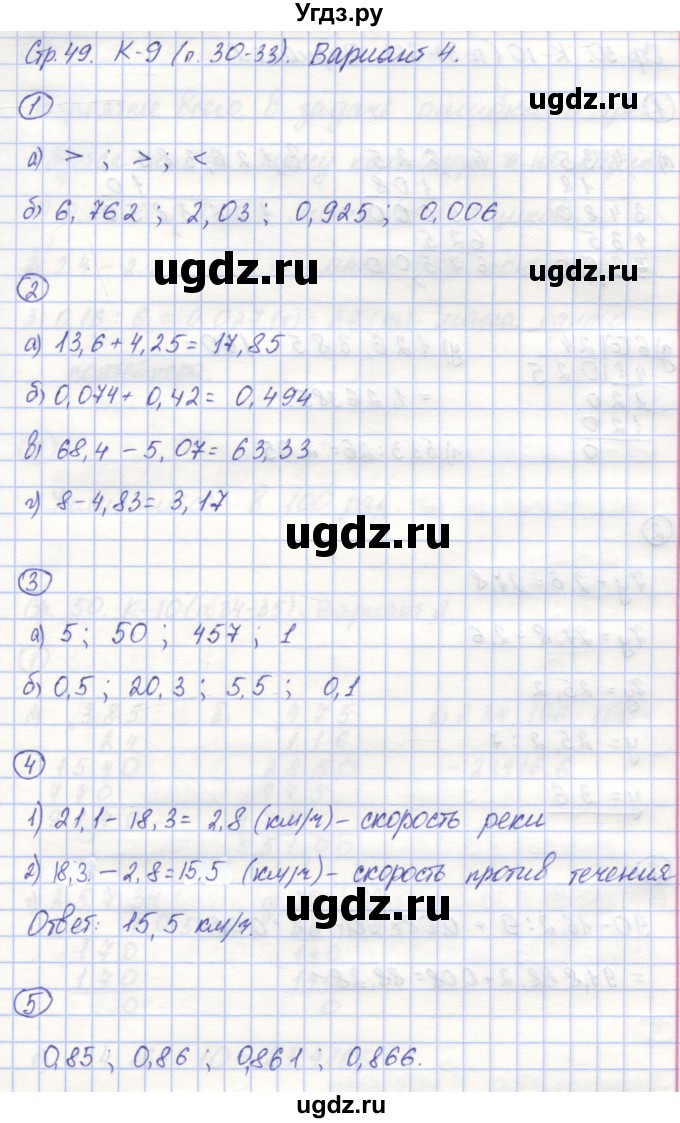 Угдз.ру
Стр.49. К-9 (п. 30-33). Вариант 4.
1
а) > ; > ; <
б) 6,762 ; 2,03 ; 0,925 ; 0,006
ugdz.ru
ugdz.ru
2
а) 13,6 + 4,25 = 17,85
б) 0,074 + 0,42 = 0,494
в) 68,4 - 5,07 = 63,33
г) 8 - 4,83 = 3,17
ugdz.ru
3
а) 5 ; 50 ; 457 ; 1
б) 0,5 ; 20,3 ; 5,5 ; 0,1
ugdz.ru
4
1) 21,1 - 18,3 = 2,8 (км/ч) - скорость реки
2) 18,3 - 2,8 = 15,5 (км/ч) - скорость против течения
Ответ: 15,5 км/ч.
ugdz.ru
5
0,85 ; 0,86 ; 0,861 ; 0,866.
ugdz.ru
ugdz.ru